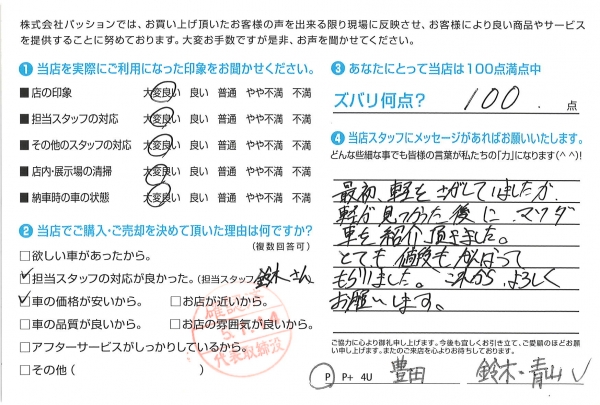 株式会社パッションでは、お買い上げ頂いたお客様の声を出来る限り現場に反映させ、お客様により良い商品やサービス
を提供することに努めております。大変お手数ですが是非、お声を聞かせてください。
1 当店を実際にご利用になった印象をお聞かせください。
■ 店の印象 大変良い 良い 普通 やや不満 不満
■ 担当スタッフの対応 大変良い 良い 普通 やや不満 不満
■ その他のスタッフの対応 大変良い 良い 普通 やや不満 不満
■ 店内・展示場の清掃 大変良い 良い 普通 やや不満 不満
■ 納車時の車の状態 大変良い 良い 普通 やや不満 不満
2 当店でご購入・ご売却を決めて頂いた理由は何ですか?
(複数回答可)
□欲しい車があったから。
□担当スタッフの対応が良かった。(担当スタッフ 鈴木さん
□車の価格が安いから。 □お店が近いから。
□車の品質が良いから。 □お店の雰囲気が良いから。
□アフターサービスがしっかりしているから。
□その他 ( )
代表取締役
3 あなたにとって当店は100点満点中
ズバリ何点? 100 点
4 当店スタッフにメッセージがあればお願いいたします。
どんな些細な事でも皆様の言葉が私たちの「力」になります(^^)!
最初、軽をさがしていましたが
軽が見つかった後に マツダ
車を紹介頂きました。
とても 値段も がんばって
もらいました。これから よろしく
お願いします。
ご協力に心より御礼申し上げます。今後も宜しくお引き立て、ご愛顧のほどお願
い申し上げます。またのご来店を心よりお待ちしております。
P P+ 4U 豊田 鈴木・青山